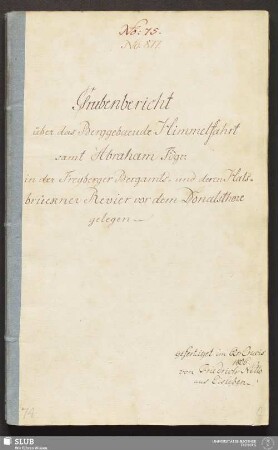 No. 75.
No. 811
Grubenbericht
über das Berggebaeude Himmelfahrt
samt Abraham Fdgr.
in der Freyberger Bergamts- und deren Hals-
brückner Revier vor dem Donatsthore
gelegen —
gefertiget im Qr. Crucis
1826
von Friedrich
aus Eisleben
SLUB
Wir führen Wissen.